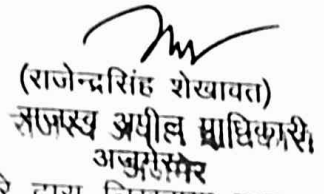 (राजेन्द्रसिंह शेखावत)
राजस्व अपील प्राधिकारी
अजमेर